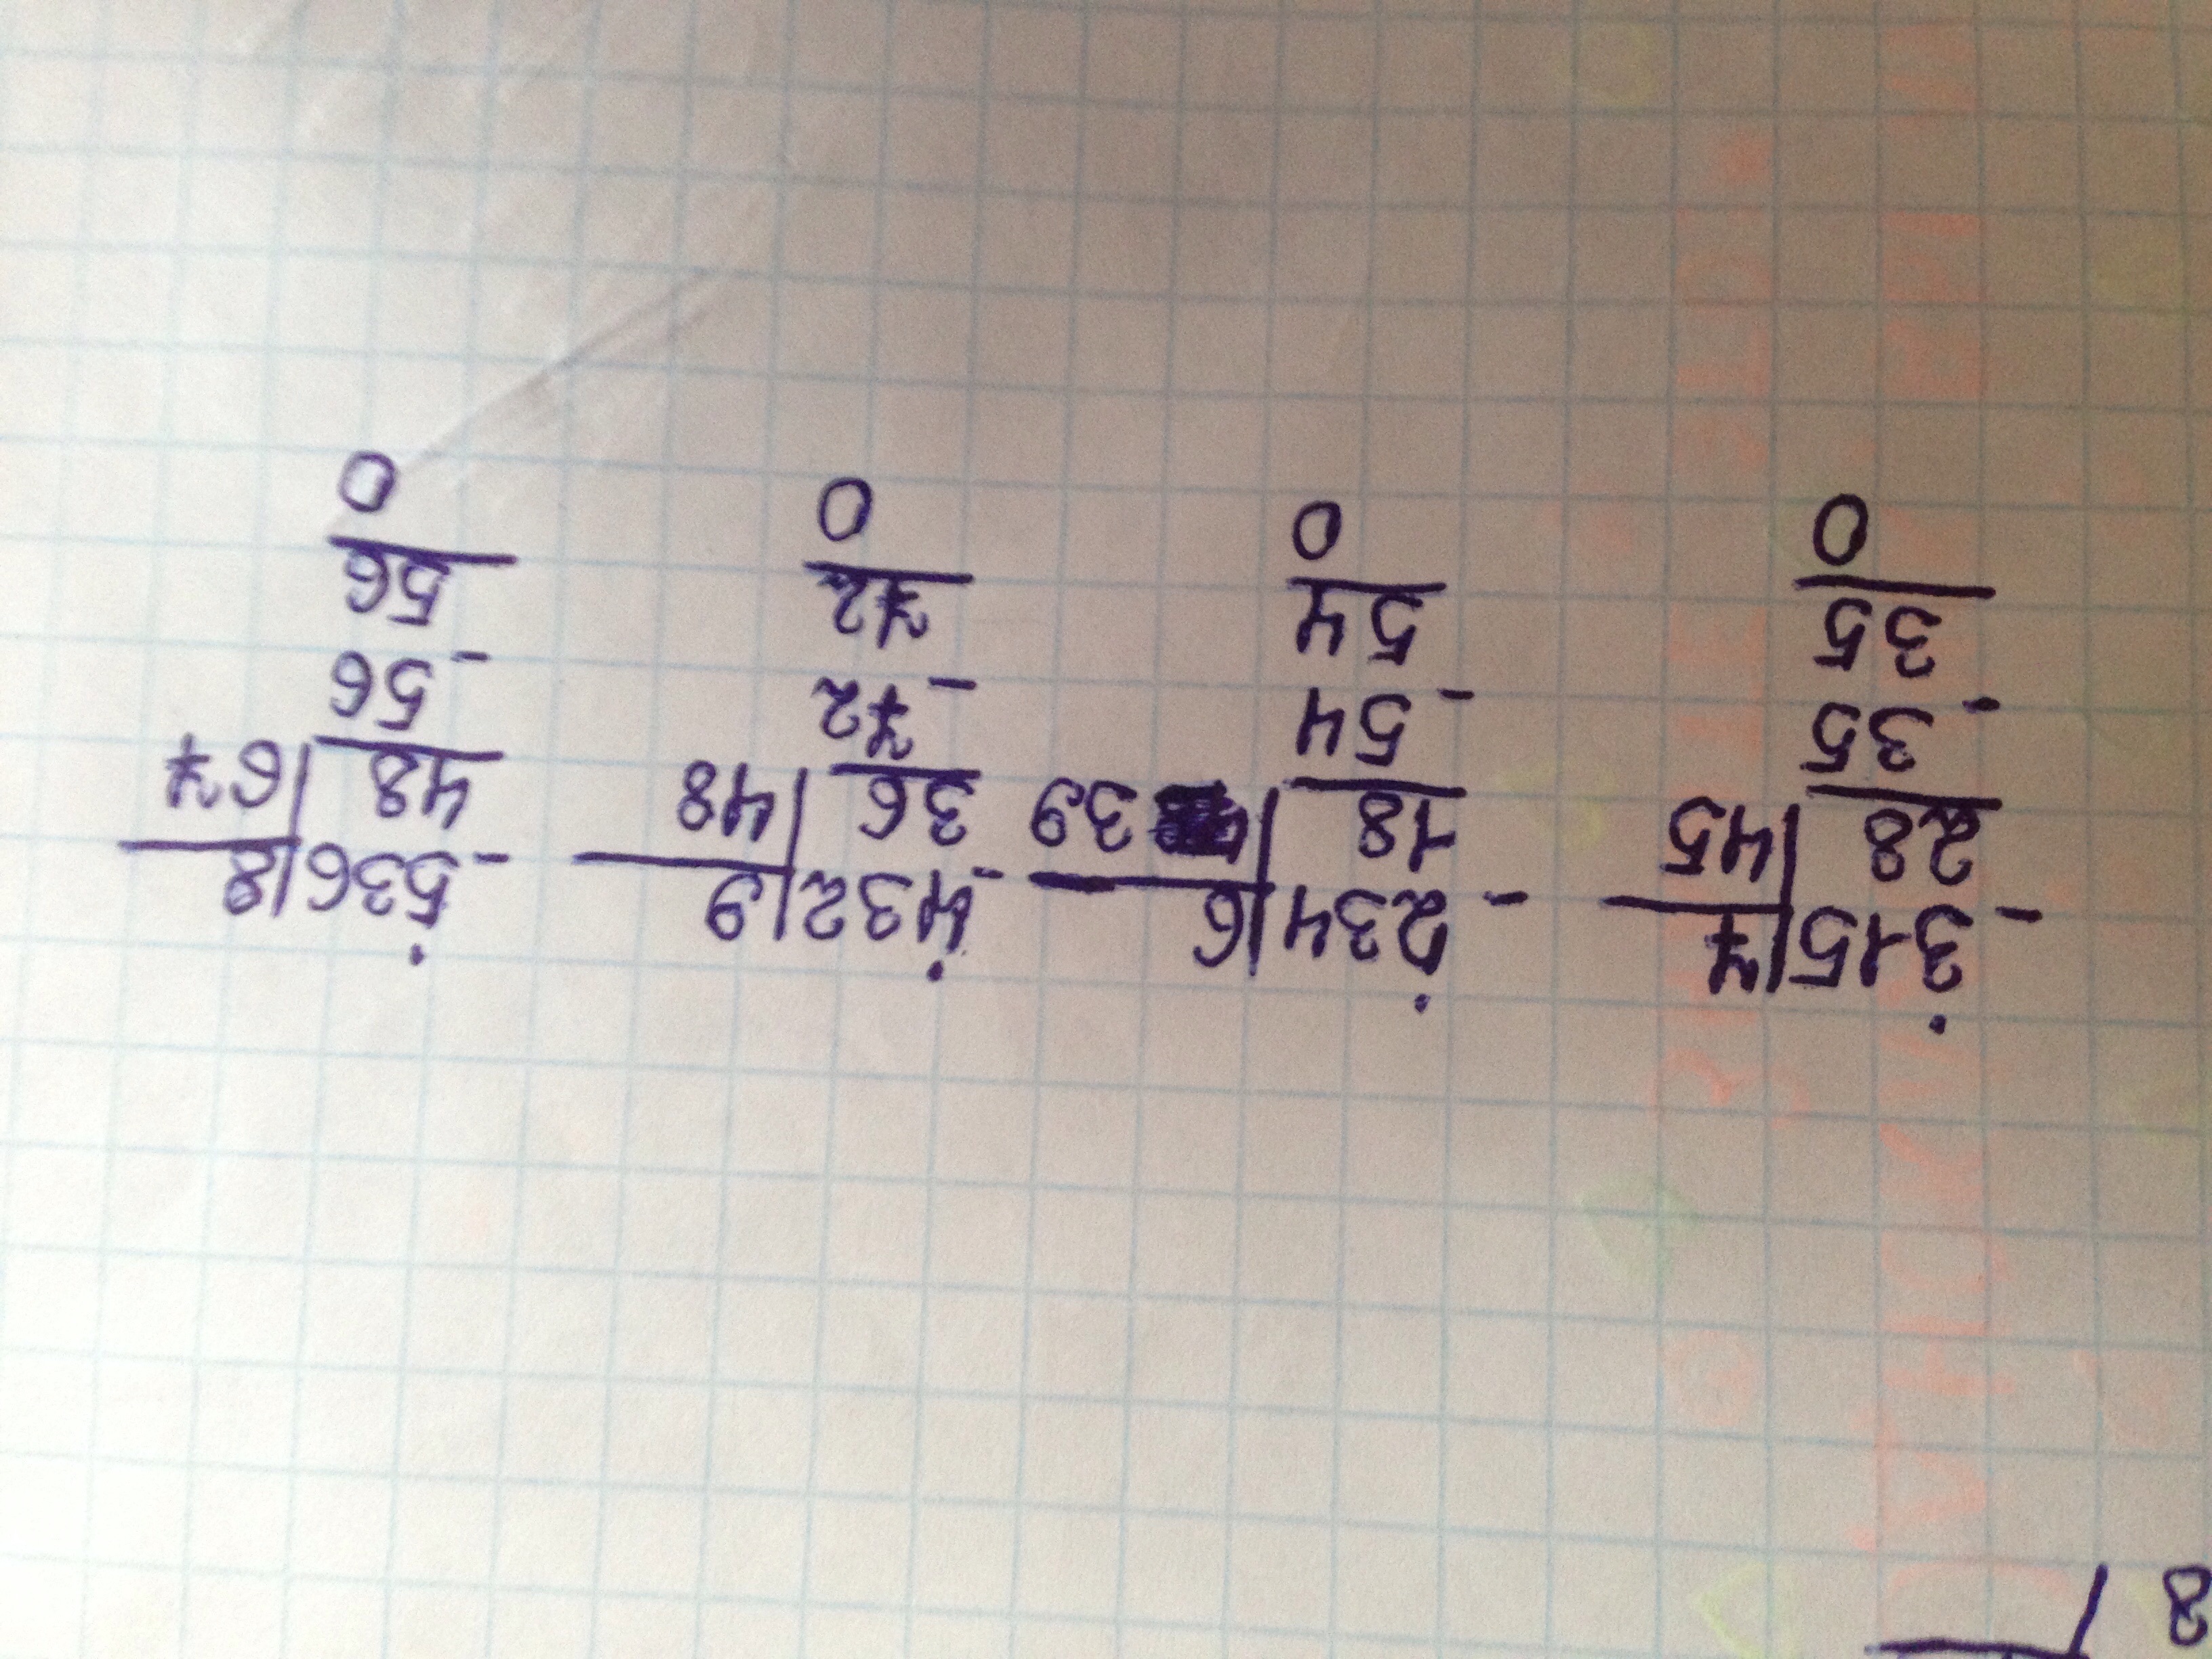 8
- 315|7
28|45
- 35
35
0
- 234|6
18|39
- 54
54
0
- 432|9
36|48
- 72
72
0
- 536|8
48|67
- 56
56
0